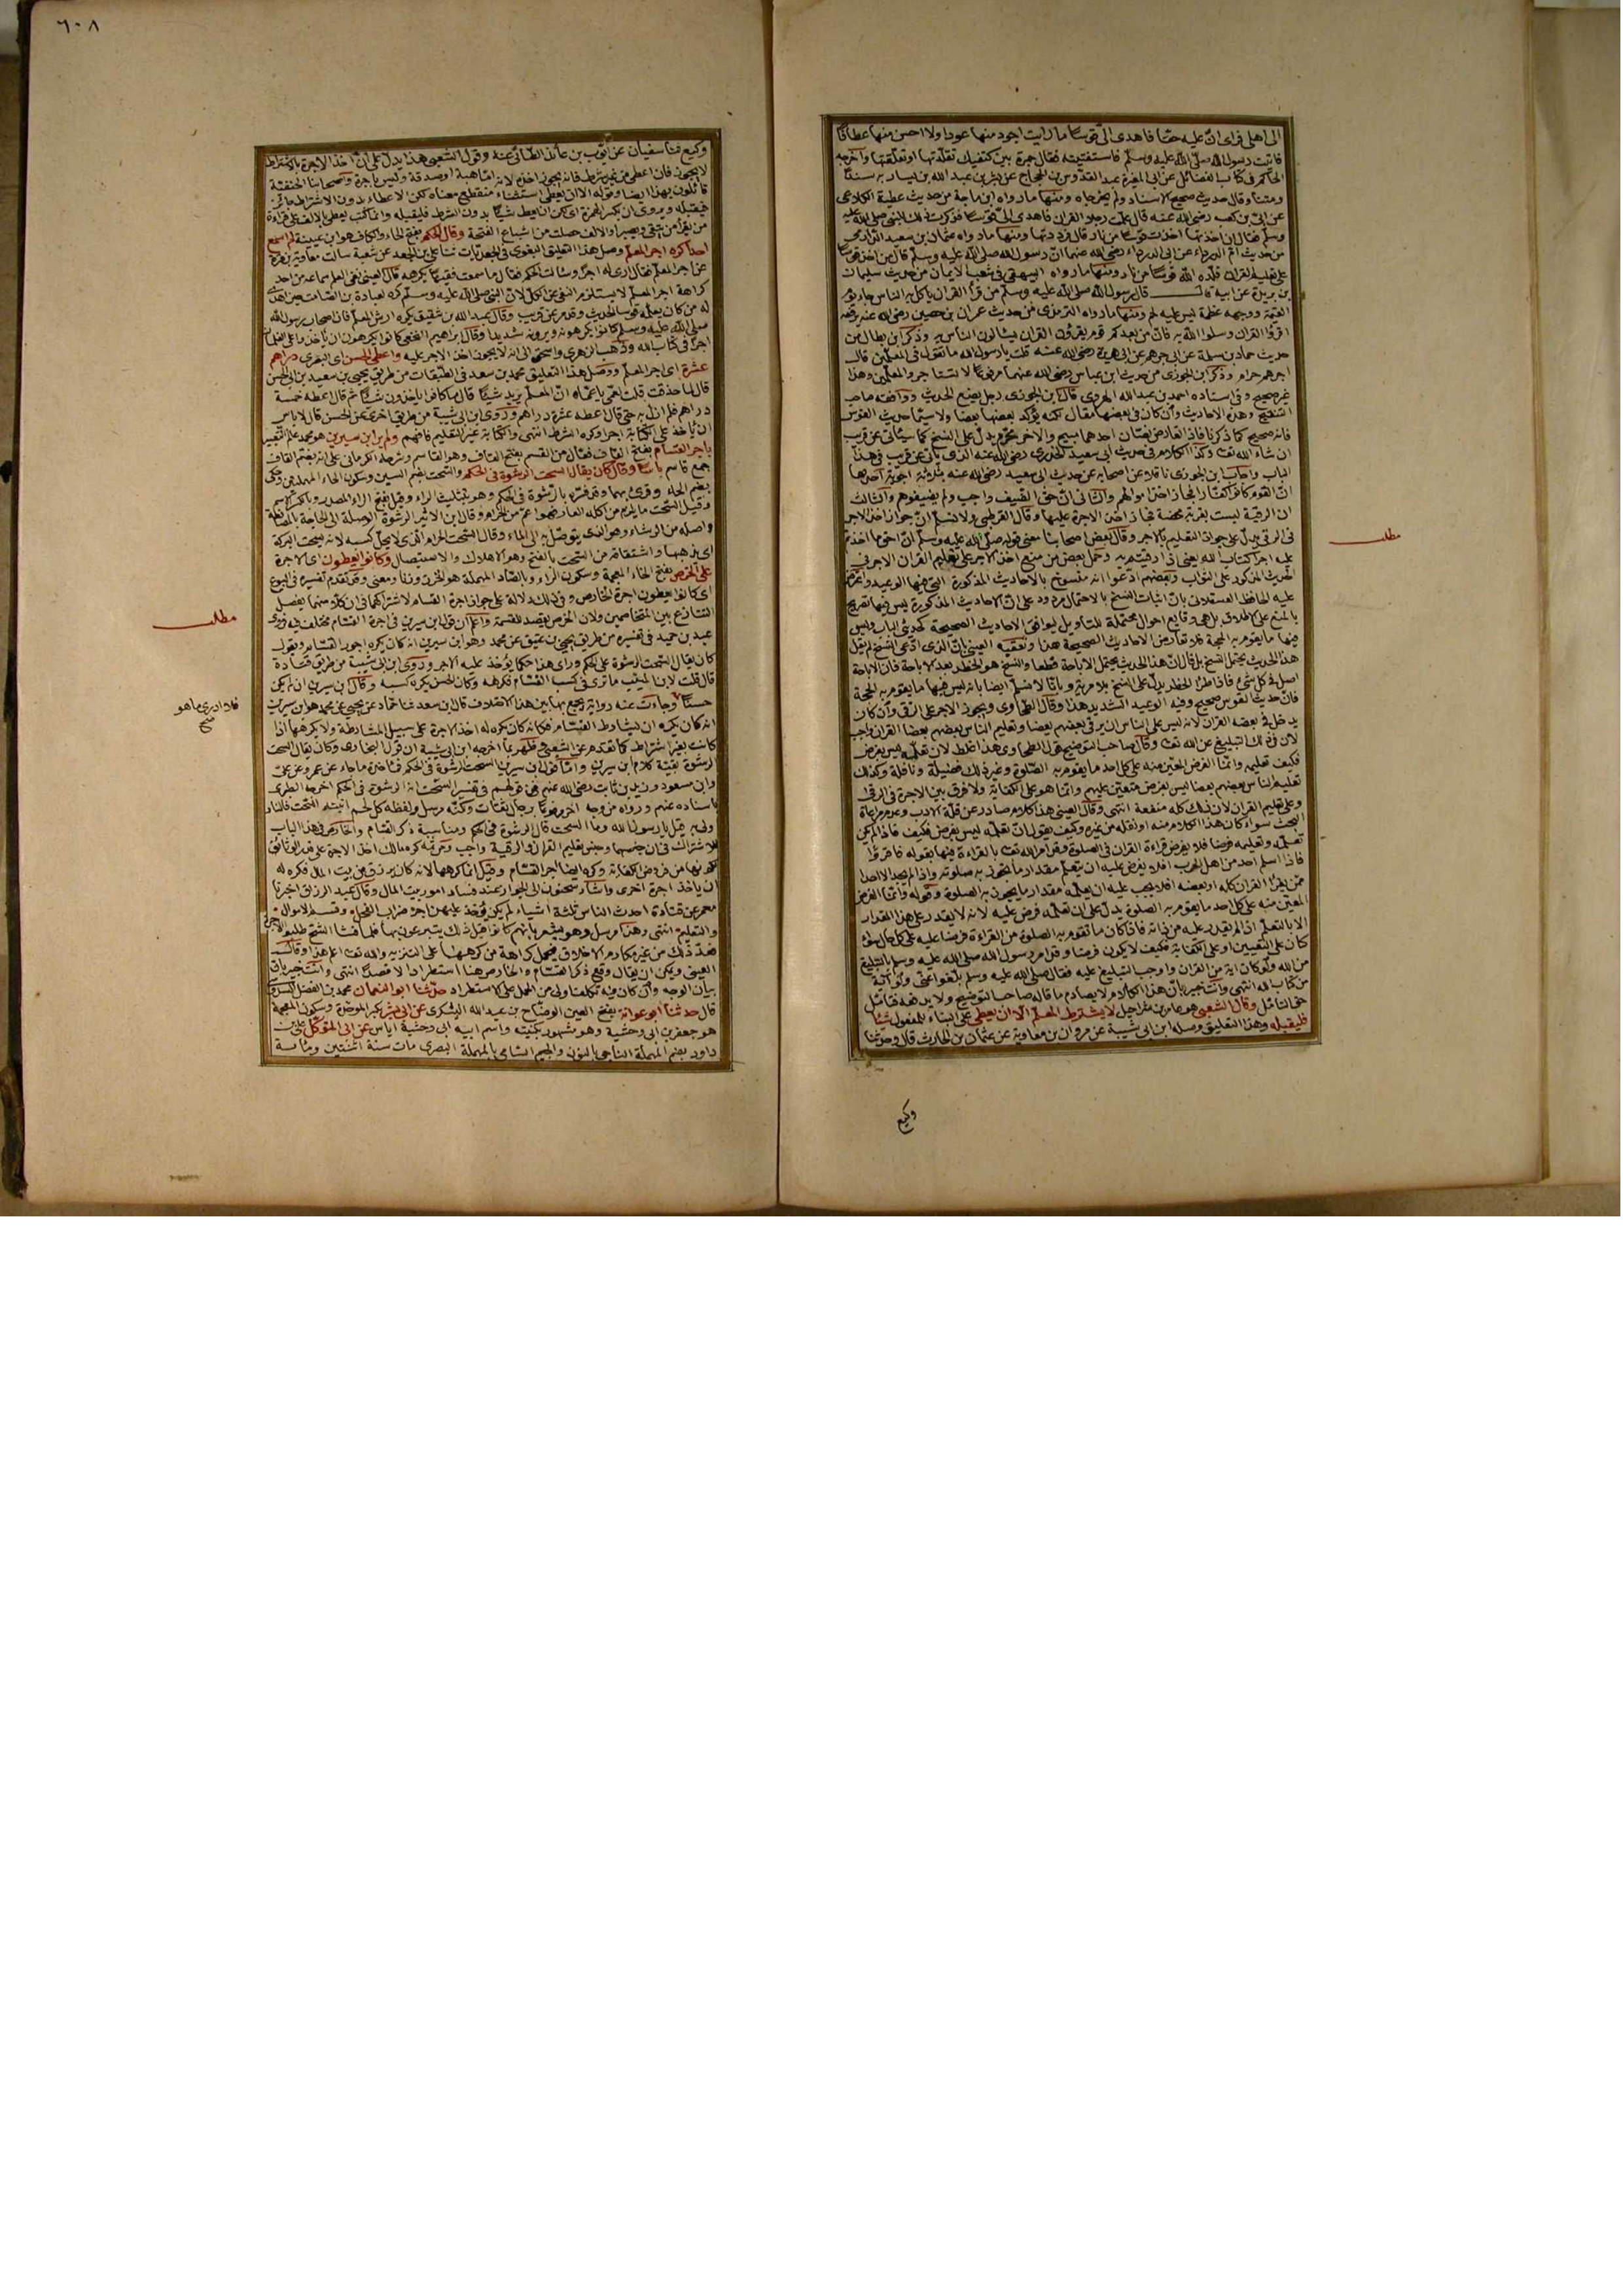 الى اهلى فراى ان عليه حقا فاهدى الى قوسا ما رايت اجود منها عودا ولا احسن منها عطافا
فاتيت رسول الله صلى الله عليه وسلم فاستفتيته فقال جمرة بين كتفيك تقلدتها او تعلقتها واخرجه
الحاكم فى كتاب الفضائل عن ابى المغيرة عبد القدوس بن الحجاج عن بشر بن عبد الله بن يسار به سندا
ومتنا وقال حديث صحيح الاسناد ولم يخرجاه ومنها ما رواه ابن ماجة من حديث عطية الكلاعى
عن ابى بن كعب رضى الله عنه قال علمت رجلا القران فاهدى الى قوسا فذكرت ذلك للنبى صلى الله عليه
وسلم فقال ان اخذتها اخذت قوسا من نار قال فرددتها ومنها ما رواه عثمان بن سعيد الدارمى
من حديث ام الدرداء عن ابى الدرداء رضى الله عنهما ان رسول الله صلى الله عليه وسلم قال من اخذ قوسا
على تعليم القران قلده الله قوسا من نار ومنها ما رواه البيهقى فى شعب الايمان من حديث سليمان
بن بريدة عن ابيه قال قال رسول الله صلى الله عليه وسلم من قرأ القران ياكل به الناس جاء يوم
القيمة ووجهه عظمة ليس عليه لحم ومنها ما رواه الترمذى من حديث عمران بن حصين رضى الله عنه يرفعه
اقرؤا القران وسلوا الله به فان من بعدكم قوم يقرؤن القران يسالون الناس به وذكر ابن بطال من
حديث حماد بن سلمة عن ابى جرهم عن ابى هريرة رضى الله عنه قلت يا رسول الله ما تقول فى المعلمين قال
اجرهم حرام وذكر ابن الجوزى من حديث ابن عباس رضى الله عنهما مرفوعا لا تستاجروا المعلمين وهذا
غير صحيح وفى اسناده احمد بن عبد الله الهروى قال ابن الجوزى رجل يضع الحديث ووافقه صاحب
التنقيح وهذه الاحاديث وان كان فى بعضها مقال لكنه يؤكد بعضها بعضا ولا سيما حديث القوس
فانه صحيح كما ذكرنا فاذا تعارض نصان احدهما مبيح والاخر محرم يدل على النسخ كما سيأتى عن قريب
ان شاء الله تعالى وكذا الكلام فى حديث ابى سعيد الخدرى رضى الله عنه الذى يأتى عن قريب فى هذا
الباب واجاب ابن الجوزى ناقلا عن اصحابه عن حديث ابى سعيد رضى الله عنه بثلاثة اجوبة احدها
ان القوم كانوا كفارا فجاز اخذ اموالهم والثانى ان حق الضيف واجب ولم يضيفوهم والثالث
ان الرقية ليست بقربة محضة فجاز اخذ الاجرة عليها وقال القرطبى ولا نسلم ان جواز اخذ الاجر
فى الرقى يدل على جواز التعليم بالاجر وقال بعض اصحابنا معنى قوله صلى الله عليه وسلم ان احق ما اخذتم
عليه اجرا كتاب الله يعنى اذا رقيتم به وحمل بعض من منع اخذ الاجر على تعليم القران الاجر فى
الحديث المذكور على الثواب وبعضهم ادعوا انه منسوخ بالاحاديث المذكورة التى فيها الوعيد واعترض
عليه الحافظ العسقلانى بان اثبات النسخ بالاحتمال مردود على ان الاحاديث المذكورة ليس فيها تصريح
بالمنع على الاطلاق بل هى وقايع احوال محتملة للتأويل لتوافق الاحاديث الصحيحة كحديثى الباب وليس
فيها ما يقوم به الحجة فلا تعارض الاحاديث الصحيحة هذا وتعقبه العينى بان الذى ادعى النسخ لم يقل
هذا الحديث يحتمل النسخ بل قال ان هذا الحديث يحتمل الاباحة قطعا والنسخ هو الحظر بعد الاباحة فان الاباحة
اصل فى كل شئ فاذا طرأ الحظر يدل على النسخ بلا مرية وبانا لا نسلم ايضا بانه ليس فيها ما يقوم به الحجة
فان حديث القوس صحيح وفيه الوعيد الشديد هذا وقال الطحاوى ويجوز الاجر على الرقى وان كان
يدخل فى بعضه القران لانه ليس على الناس ان يرقى بعضهم بعضا وتعليم الناس بعضهم بعضا القران واجب
لان فى ذلك التبليغ عن الله تعالى وقال صاحب التوضيح قول الطحاوى هذا غلط لان تعلمه ليس بفرض
فكيف تعليمه وانما الفرض المعين منه على كل احد ما يقوم به الصلوة وغير ذلك فضيلة ونافلة وكذلك
تعليم الناس بعضهم بعضا ليس بفرض متعين عليهم وانما هو على الكفاية ولا فرق بين الاجرة فى الرقى
وعلى تعليم القران لان ذلك كله منفعة انتهى وقال العينى هذا كلام صادر عن قلة الادب وعدم مراعاة
البحث سواء كان هذا الكلام منه او نقله من غيره وكيف يقول ان تعلمه ليس بفرض فكيف فاذا لم يكن
تعلمه وتعليمه فرضا فلا يفرض قراءة القران فى الصلوة وقد امر الله تعالى بالقراءة فيها بقوله فاقرؤا
فاذا اسلم احد من اهل الحرب افلا يفرض عليه ان يتعلم مقدار ما يجوز به صلوته واذا لم يجد الا احدا
ممن يقرأ القران كله او بعضه افلا يجب عليه ان يعلمه مقدار ما يجوز به الصلوة وقوله وانما الفرض
المعين منه على كل احد ما يقوم به الصلوة يدل على ان تعلمه فرض عليه لانه لا يقدر على هذا المقدار
الا بالتعلم اذ لم يقدر عليه من ذاته فاذا كان ما تقوم به الصلوة من القراءة فرضا عليه على كل حال سواء
كان على التعيين او على الكفاية فكيف لا يكون فرضا وقد امر رسول الله صلى الله عليه وسلم بالتبليغ
من الله ولو كان اية من القران واوجب التبليغ عليه فقال صلى الله عليه وسلم بلغوا عنى ولو آية
من كتاب الله انتهى وانت خبير بان هذا الكلام لا يصادم ما قاله صاحب التوضيح ولا يدفعه فتأمل
حق التأمل وقال الشعبى هو عامر بن شراحيل لا يشترط المعلم الا ان يعطى على البناء للمفعول شيئا
فليقبله وهذا التعليق وصله ابن ابى شيبة عن مروان بن معاوية عن عثمان بن الحارث قال وحدثنا
وكيع
مطلب
٦٠٨
وكيع ثنا سفيان عن ايوب بن عائذ الطائى عنه وقول الشعبى هذا يدل على ان اخذ الاجرة بالاشتراط
لا يجوز فان اعطى من غير شرط فانه يجوز اخذه لانه اما هبة او صدقة وليس باجرة واصحابنا الحنفية
قائلون بهذا ايضا وقوله الا ان يعطى استثناء منقطع معناه لكن الاعطاء بدون الاشتراط جائز
فيقبله ويروى ان بكسر الهمزة اى لكن ان يعط شيئا بدون الشرط فليقبله وانما كتب يعطى بالالف على قراءة
من يقرأ من يتقى ويصبر او الالف حصلت من اشباع الفتحة وقال الحكم بفتح الحاء والكاف هو ابن عيينة لم اسمع
احدا كره اجر المعلم وصل هذا التعليق البغوى فى الجعديات ثنا على بن الجعد عن شعبة سالت معاوية بن قرة
عن اجر المعلم فقال ارى له اجرا وسالت الحكم فقال ما سمعت فقيها يكرهه قال العينى نفى العلم سماعه من احد
كراهة اجر المعلم لا يستلزم النفى عن الكل لان النبى صلى الله عليه وسلم كره لعبادة بن الصامت حين اهدى
له من كان يعلمه قوسا الحديث وقد مر عن قريب وقال عبد الله بن شقيق يكره ارش المعلم فان اصحاب رسول الله
صلى الله عليه وسلم كانوا يكرهونه ويرونه شديدا وقال ابراهيم النخعى كانوا يكرهون ان ياخذوا على الغلمان
اجرا فى كتاب الله وذهب الزهرى واسحق الى انه لا يجوز اخذ الاجر عليه واعطى الحسن اى البصرى دراهم
عشرة اى اجر المعلم ووصل هذا التعليق محمد بن سعد فى الطبقات من طريق يحيى بن سعيد بن ابى الحسن
قال لما حذقت قلت لعمى يا عماه ان المعلم يريد شيئا قال ما كانوا ياخذون شيئا ثم قال اعطه خمسة
دراهم فلم ازل به حتى قال اعطه عشرة دراهم وروى ابن ابى شيبة من طريق اخرى عن الحسن قال لا باس
ان ياخذ على الكتابة اجرا وكره الشرط انتهى والكتابة غير التعليم فافهم ولم ير ابن سيرين هو محمد علم التعبير
باجر القسام بفتح القاف فعال من القسم بفتح القاف وهو القاسم وشرحه الكرمانى على انه بضم القاف
جمع قاسم باسا وقال كان يقال السحت الرشوة فى الحكم والسحت بضم السين وسكون الحاء المهملة وحكى
بضم الحاء وقرئ بهما وقد فسره بالرشوة فى الحكم وهو بتثليث الراء وقيل بفتح الراء المصدر وبالكسر الاسم
وقيل السحت ما يلزم من اكله العار فهو اعم من الحرام وقال ابن الاثير الرشوة الوصلة الى الحاجة بالمصانعة
واصله من الرشاء وهو الذى يتوصل به الى الماء وقال السحت الحرام الذى لا يحل كسبه لانه يسحت البركة
اى يذهبها واشتقاقه من السحت بالفتح وهو الاهلاك والاستيصال وكانوا يعطون اى الاجرة
على الخرص بفتح الخاء المعجمة وسكون الراء وبالصاد المهملة هو الحزر وزنا ومعنى وقد تقدم تفسيره فى البيوع
اى كانوا يعطون اجرة الخارص وفى ذلك دلالة على جواز اجرة القسام لاشتراكهما فى ان كلا منهما يفصل
التنازع بين المتخاصمين ولان الخرص يقصد للقسمة واعلم ان قول ابن سيرين فى اجرة القسام مختلف فيه فروى
عبد بن حميد فى تفسيره من طريق يحيى بن عتيق عن محمد وهو ابن سيرين انه كان يكره اجور القسام ويقول
كان يقال السحت الرشوة على الحكم وارى هذا حكما يؤخذ عليه الاجر وروى ابن ابى شيبة من طريق قتادة
قال قلت لابن المسيب ما ترى فى كسب القسام فكرهه وكان الحسن يكره كسبه وقال ابن سيرين ان لم يكن
حسنا وجاءت عنه رواية يجمع بها بين هذا الاختلاف قال ابن سعد ثنا حماد عن يحيى عن محمد هو ابن سيرين
انه كان يكره ان يشارط القسام فكانه كان يكره له اخذ الاجرة على سبيل المشارطة ولا يكرهها اذا
كانت بغير اشتراط كما تقدم عن الشعبى فظهر بما اخرجه ابن ابى شيبة ان قول البخارى وكان يقال السحت
الرشوة بقية كلام ابن سيرين واما قول ابن سيرين السحت الرشوة فى الحكم فماخذه ما جاء عن عمر وعن على
وابن مسعود وزيد بن ثابت رضى الله عنهم من قولهم فى تفسير السحت انه الرشوة فى الحكم اخرجه الطبرى
باسناده عنهم ورواه من وجه اخر مرفوعا برجال ثقات ولكنه مرسل ولفظه كل لحم انبته السحت فالنار
اولى به قيل يا رسول الله وما السحت قال الرشوة فى الحكم ومناسبة ذكر القسام والخارص فى هذا الباب
للاشتراك فى ان جنسهما وجنس تعليم القران والرقية واحد ومن ثم كره مالك اخذ الاجرة على عقد الوثائق
لكونها من فروض الكفاية وكره ايضا اجر القسام وقيل انما كرهها لانه كان يرزق من بيت المال فكره له
ان ياخذ اجرة اخرى واشار سحنون الى الجواز عند فساد امور بيت المال وقال عبد الرزاق اخبرنا
معمر عن قتادة احدث الناس ثلثة اشياء لم يكن يؤخذ عليهن اجر ضراب الفحل وقسمة الاموال
والتعليم انتهى وهذا مرسل وهو يشعر بانهم كانوا قبل ذلك يتبرعون بها فلما فشا الشح طلبوا الاجرة
فعد ذلك من غير مكارم الاخلاق فتحمل كراهة من كرهها على التنزيه والله تعالى اعلم هذا وقال
العينى ويمكن ان يقال وقع ذكر القسام والخارص هنا استطرادا لا قصدا انتهى وانت خبير بان
بيان الوجه وان كان فيه تكلف اولى من الحمل على الاستطراد حدثنا ابو النعمان محمد بن الفضل السدوسى
قال حدثنا ابو عوانة بفتح العين الوضاح بن عبد الله اليشكرى عن ابى بشر بكسر الموحدة وسكون المعجمة
هو جعفر بن ابى وحشية وهو مشهور بكنيته واسم ابيه ابى وحشية اياس عن ابى المتوكل على بن
داود بضم المهملة الناجى بالنون والجيم الشامى بالمهملة البصرى مات سنة اثنتين ومائة
مطلب
فلا ادرى ما هو
صح